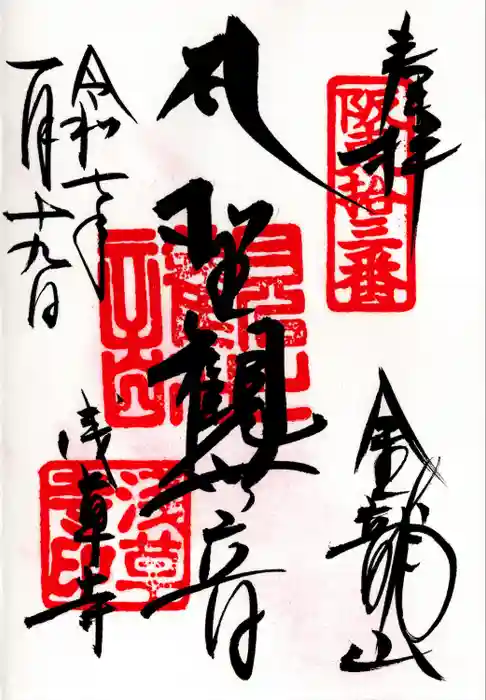 奉拝
阪東拾三番
金龍山
聖観世音
浅草寺
浅草寺印
令和七年
一月十九日